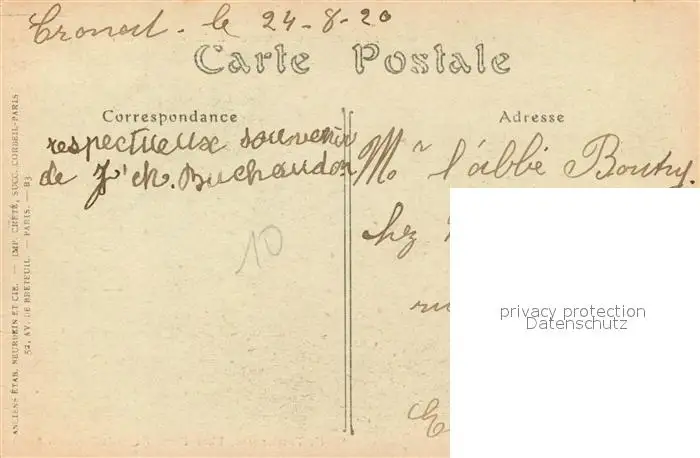 le 24-8-20
Carte Postale
Correspondance
Adresse
respectueux souvenir
de J' ch. Buchaudon
Mr l'abbé Boutry.
chez
10
privacy protection
Datenschutz
ANCIENS ÉTAB. NEURDEIN ET CIE. — IMP. CRÉTÉ, SUCC. CORBEIL-PARIS
52, AV. DE BRETEUIL. — PARIS. — B3